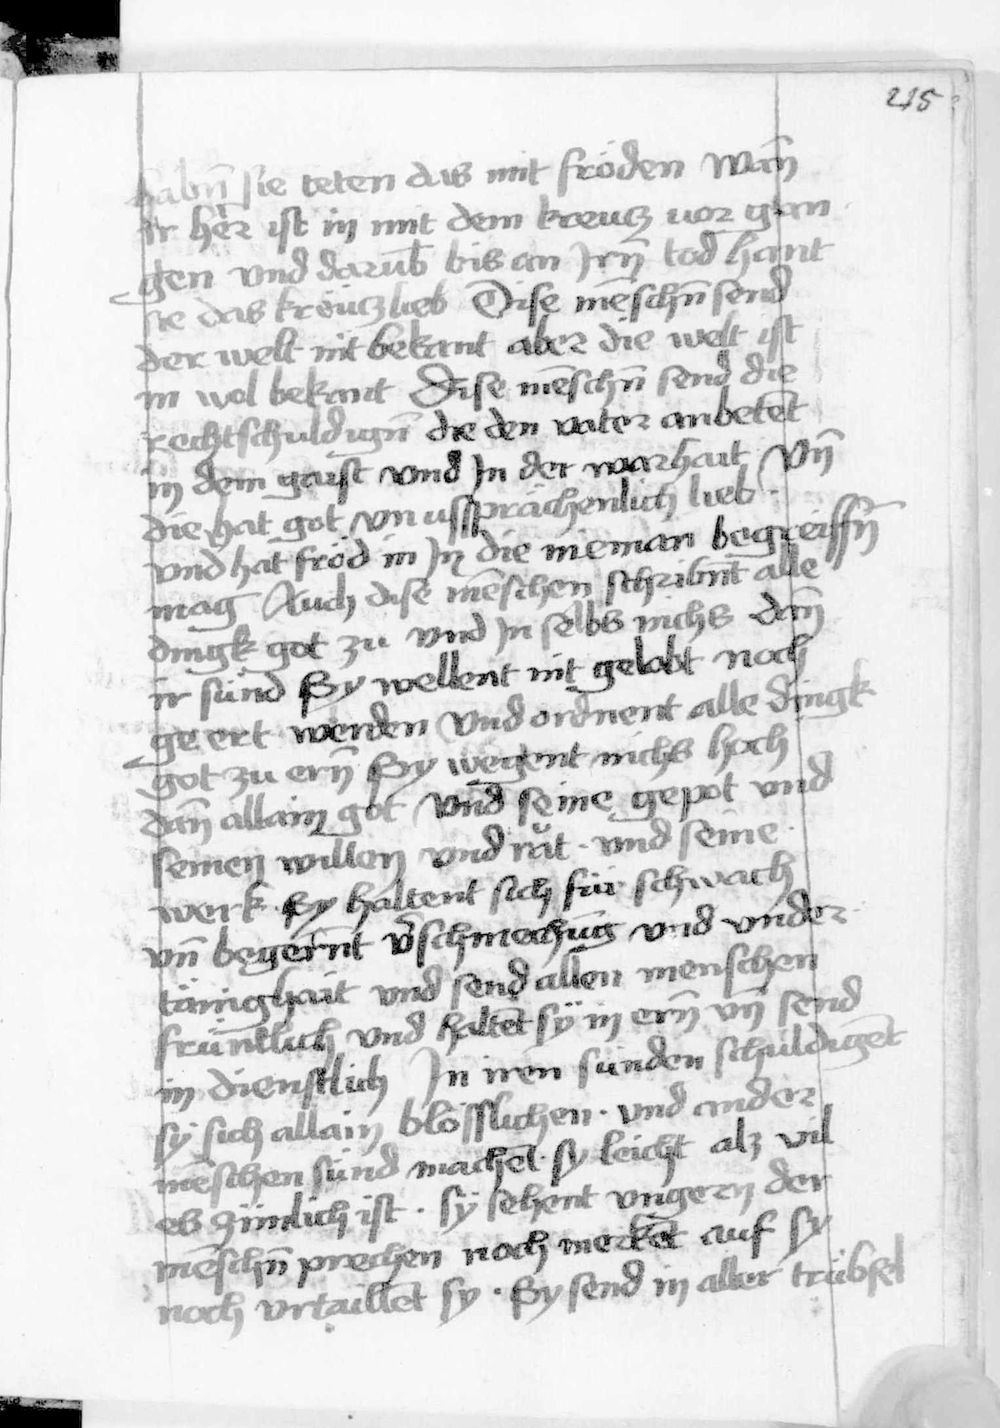 215
habn̄ sie teten das mit fröden Wan̄
ir her ist in mit dem kreutz vor gan
gen vnd darūb bis an Jrn̄ tod hant
sie das kröutz lieb Dise mēschn̄ send
der welt nit bekant aber die welt ist
in wol bekant Dise mēschn̄ send die
rechtschuldign̄ die den vater anbetēt
in dem gaist vnd Jn der warhait Vn̄
die hat got vnussprächenlich lieb ·
vnd hat fröd in Jn die nieman begreiffn̄
mag Auch dise mēschen schribnt̄ alle
dingk got zu vnd Jn selbs nichs dan̄
ir sünd Sy wellent nit gelobt noch
ge ert werden Vnd ordnent alle dingk
got zu ern̄ Sy wegent nichs hoch
dan̄ allain got Vnd seine gepot vnd
seinen willen vnd rǎt · vnd seine ·
werk · Sy haltent sich für schwach
vn̄ begernt v̄schmechūg vnd vnder
tänighait vnd send allen menschen
früntlich vnd haltēt sÿ in ern̄ vn̄ send
in dienstlich Jn iren sünden schuldigēt
sÿ sich allain blösslichen · vnd ander
mēschen sünd machēt · sy leicht alz vil
es zimlich ist · sÿ sehent vngern der
mēschn̄ prechen noch merkēt auf sy
noch vrtaillēt sy · Sy send in aller trübsel